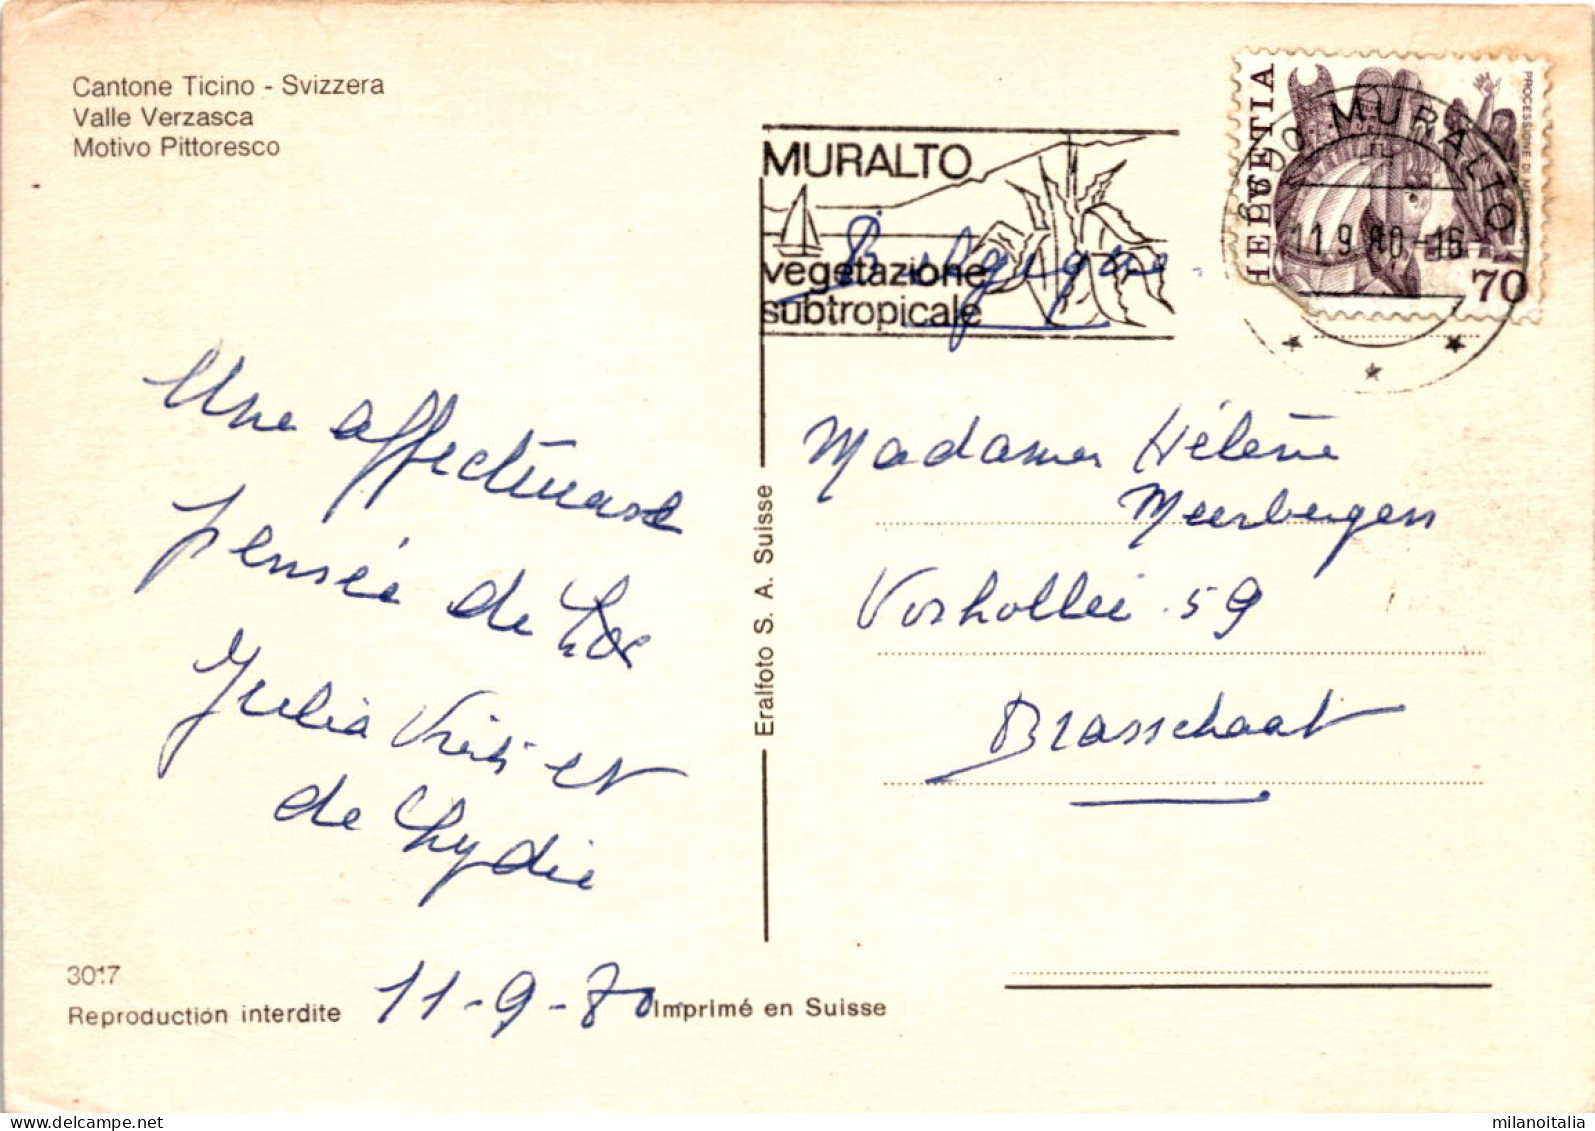 Cantone Ticino - Svizzera
Valle Verzasca
Motivo Pittoresco
MURALTO
vegetazione
subtropicale
HELVETIA
70
6600 MURALTO
11.9.80-16
Belgique
Une affectueuse
pensée de
Julia et
de Lydie
11-9-80
Madame Hélène
Meerbergen
Voshollei 59
Brasschaat
Eralfoto S. A. Suisse
3017
Reproduction interdite
Imprimé en Suisse
milanoitalia